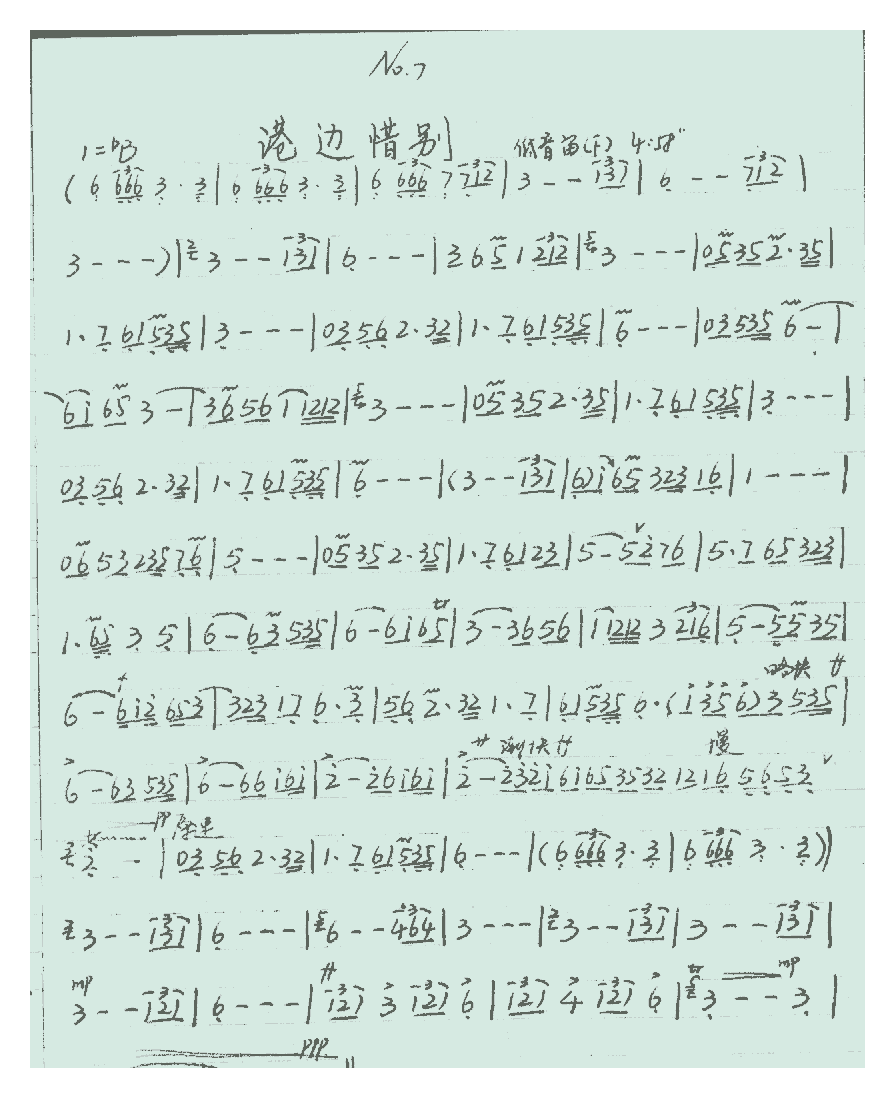 No.7
港边惜别
1=ᵇB 低音笛(F) 4.58"
(6 666 3·3|6 666 3·3|6 666 7 712|3--131|6--712|
3---)|3--131|6---|3 6 5 1 212|3---|05352·35|
1·761535|3---|03562·32|1·761535|6---|03535 6-|
6i65 3-|3656 1 1212|3---|05352·35|1·761535|3---|
03562·32|1·761535|6---|(3--131|6)i6532316|1---|
065323576|5---|05352·35|1·76123|5-5276|5·765323|
1·65 3 5|6-63535|6-6i65|3-3656|1 1212 3 216|5-5535|
6-6i2653|323176·3|562·321·7|615356·(i356)3535|
6-63535|6-66i6i|2-26i6i|2-232i6i65353212165653
慢
tr pp
2-|03562·32|1·761535|6---|(6 666 3·3|6 666 3·3)|
3--131|6---|6--464|3---|3--131|3--131|
mp tr mp
3--121|6---|121 3 121 6|121 4 121 6|3--3|
ppp